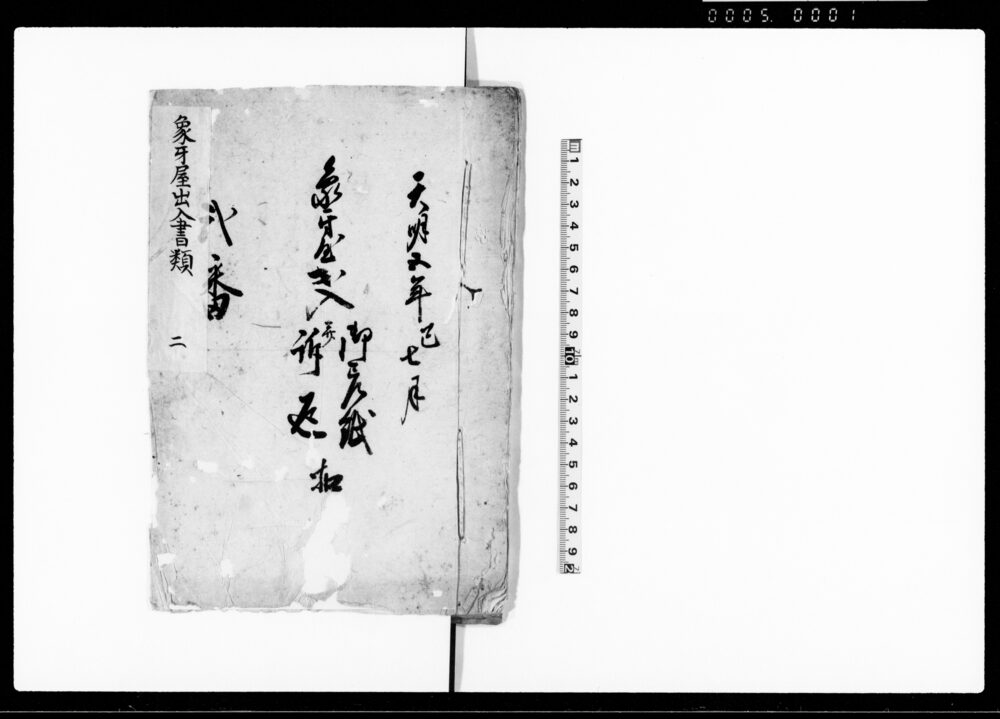 0005. 0001
天明五年巳七月
象牙屋出入
御差紙
并
訴返
扣
弐番
象牙屋出入書類 二
1 2 3 4 5 6 7 8 9 10 1 2 3 4 5 6 7 8 9 2